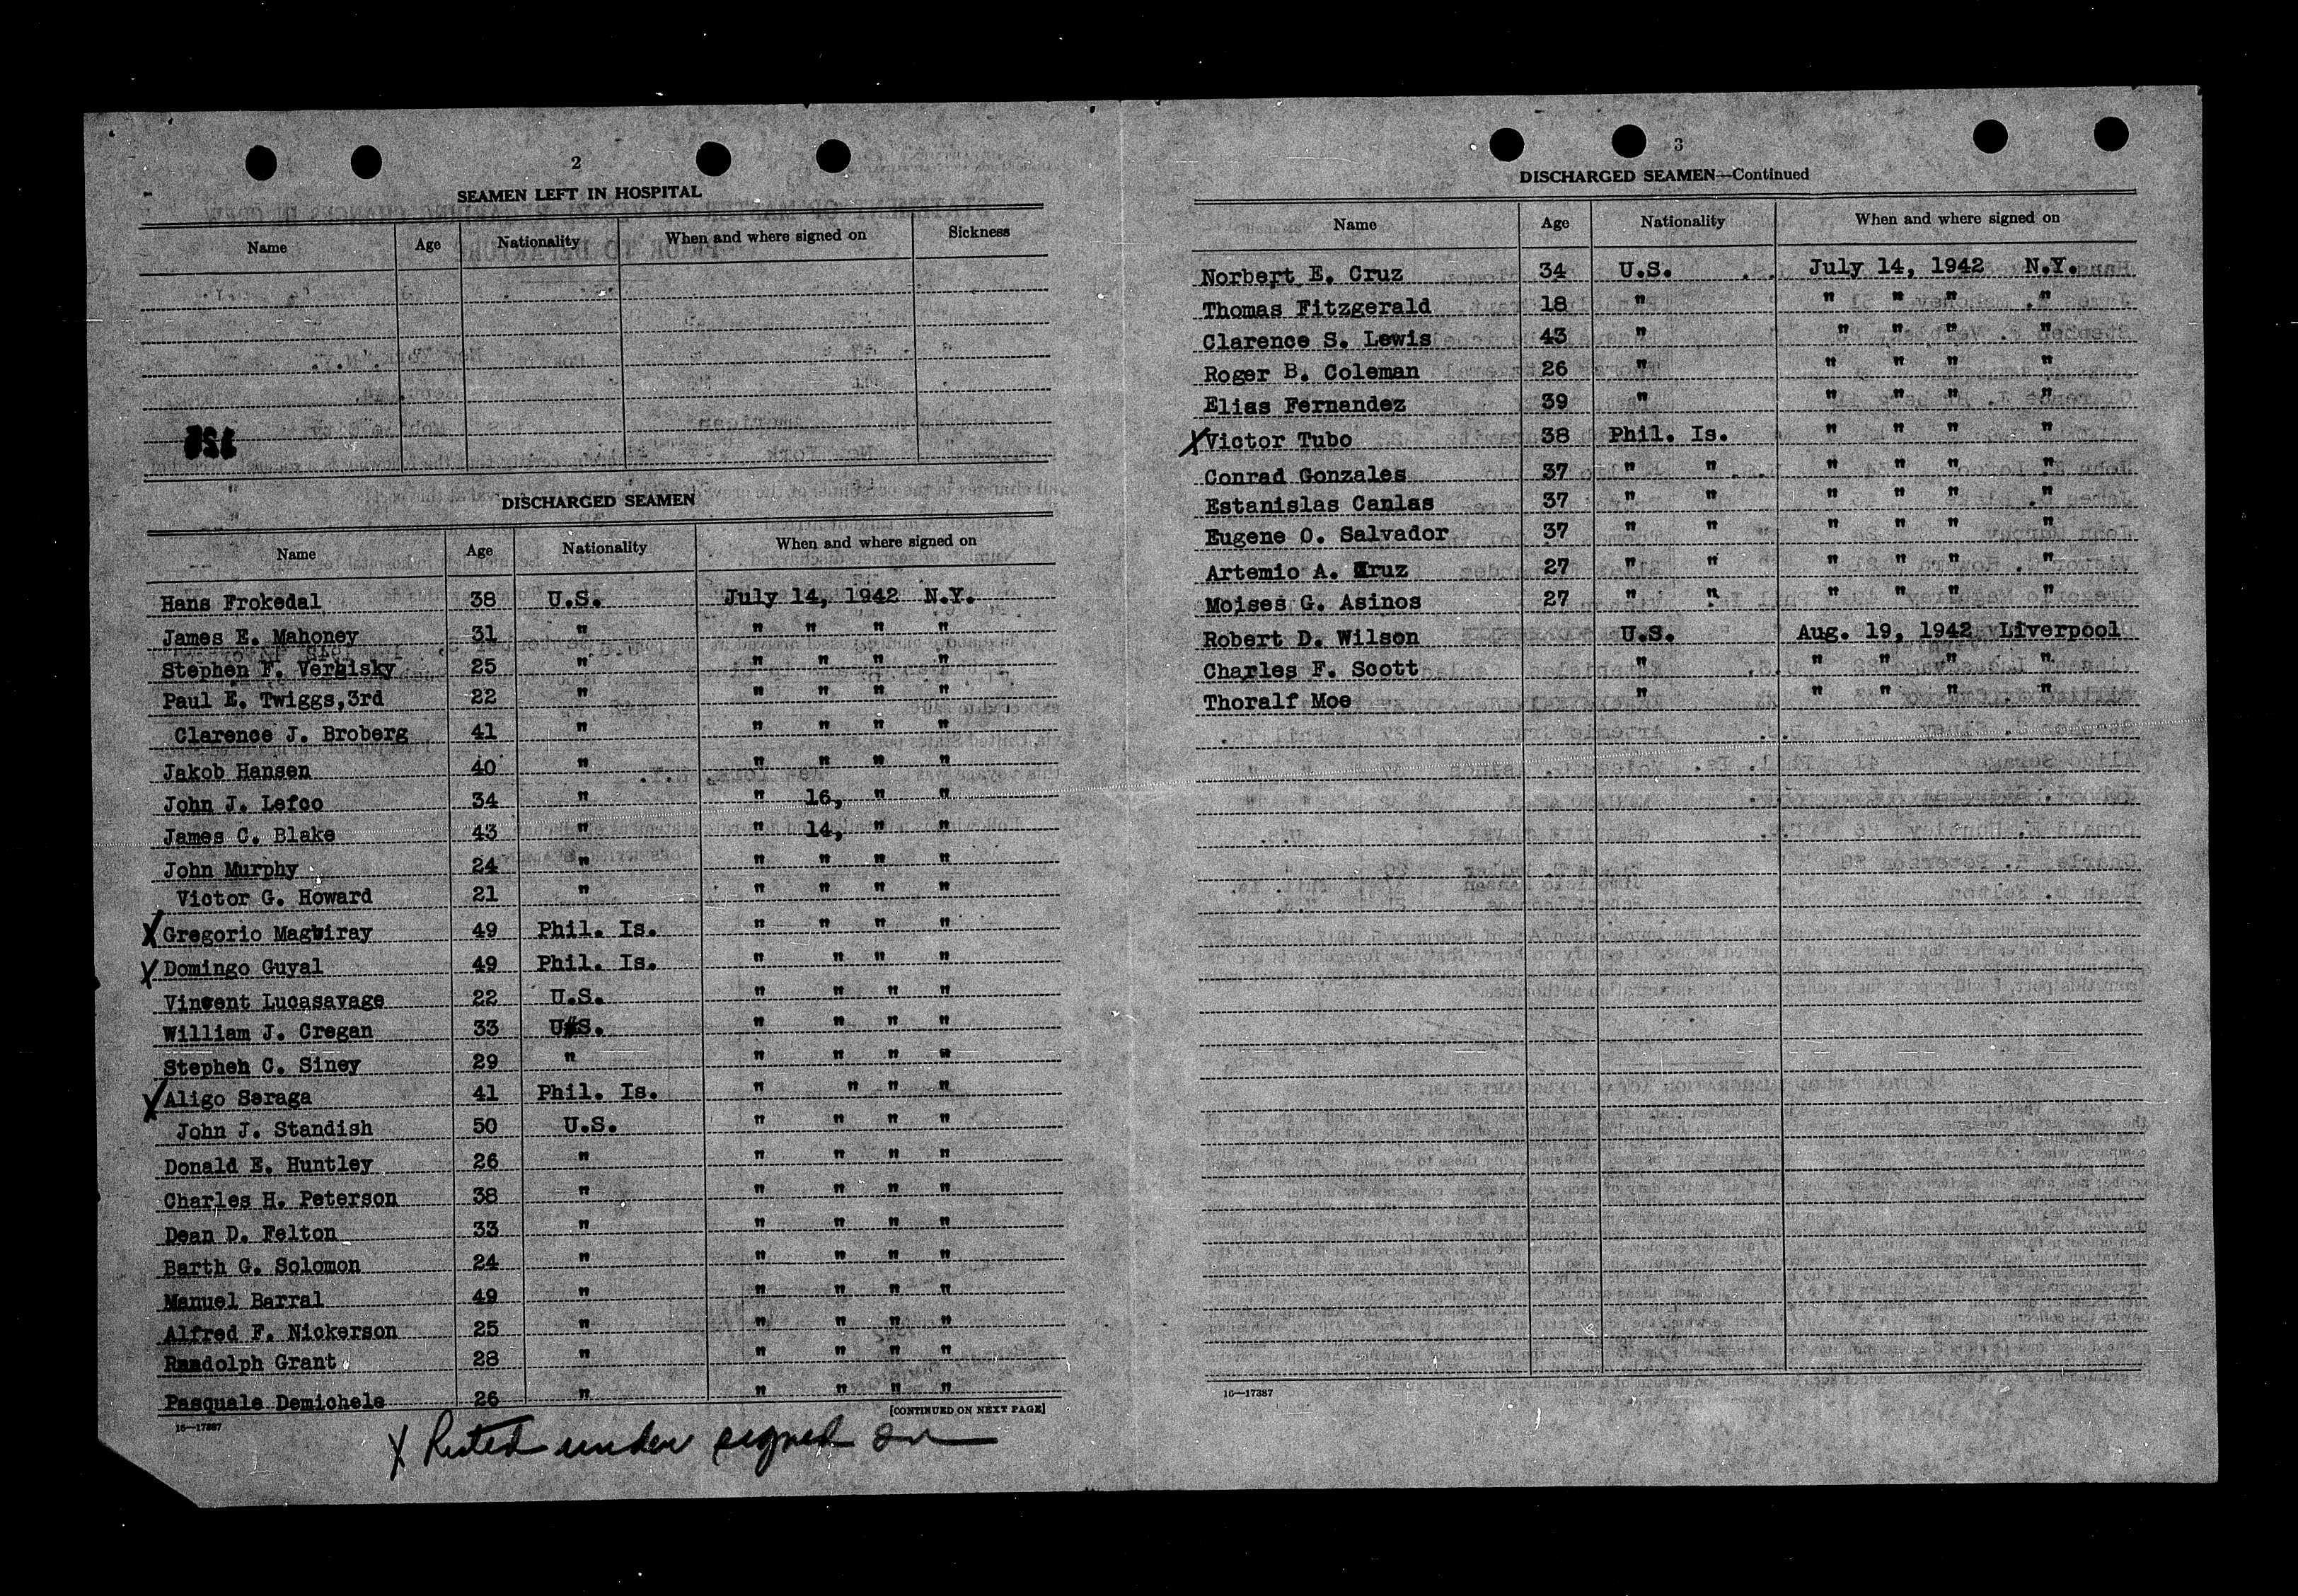 2
SEAMEN LEFT IN HOSPITAL
Name Age Nationality When and where signed on Sickness
DISCHARGED SEAMEN
Name Age Nationality When and where signed on
Hans Frokedal 38 U.S. July 14, 1942 N.Y.
James E. Mahoney 31 " " " " "
Stephen F. Verbisky 25 " " " " "
Paul E. Twiggs,3rd 22 " " " " "
Clarence J. Broberg 41 " " " " "
Jakob Hansen 40 " " " " "
John J. Lefco 34 " " 16, " "
James C. Blake 43 " " 14, " "
John Murphy 24 " " " " "
Victor G. Howard 21 " " " " "
X Gregorio Magwiray 49 Phil. Is. " " " "
X Domingo Guyal 49 Phil. Is. " " " "
Vincent Lucasavage 22 U.S. " " " "
William J. Cregan 33 U.S. " " " "
Stephen C. Siney 29 " " " " "
X Aligo Saraga 41 Phil. Is. " " " "
John J. Standish 50 U.S. " " " "
Donald E. Huntley 26 " " " " "
Charles H. Peterson 38 " " " " "
Dean D. Felton 33 " " " " "
Barth G. Solomon 24 " " " " "
Manuel Barral 49 " " " " "
Alfred F. Nickerson 25 " " " " "
Randolph Grant 28 " " " " "
Pasquale Demichele 26 " " " " "
16—17387 [CONTINUED ON NEXT PAGE]
X under signed on
3
DISCHARGED SEAMEN—Continued
Name Age Nationality When and where signed on
Norbert E. Cruz 34 U.S. July 14, 1942 N.Y.
Thomas Fitzgerald 18 " " " " "
Clarence S. Lewis 43 " " " " "
Roger B. Coleman 26 " " " " "
Elias Fernandez 39 " " " " "
X Victor Tubo 38 Phil. Is. " " " "
Conrad Gonzales 37 " " " " " "
Estanislas Canlas 37 " " " " " "
Eugene O. Salvador 37 " " " " " "
Artemio A. Cruz 27 " " " " " "
Moises G. Asinos 27 " " " " " "
Robert D. Wilson U.S. Aug. 19, 1942 Liverpool
Charles F. Scott " " " " "
Thoralf Moe " " " " "
16—17387